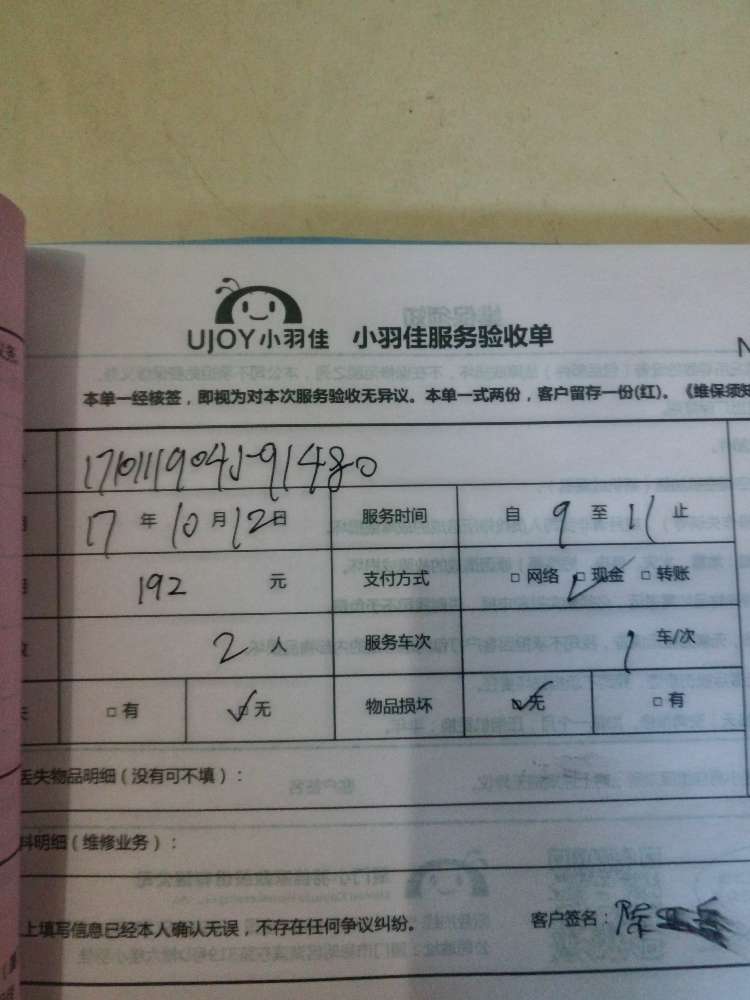 UJOY小羽佳 小羽佳服务验收单
本单一经核签，即视为对本次服务验收无异议。本单一式两份，客户留存一份(红)。《维保须知
1710111904591480
17 年 10 月 12 日 服务时间 自 9 至 11 止
192 元 支付方式 □ 网络 □ 现金 □ 转账
2 人 服务车次 1 车/次
□ 有 □ 无 物品损坏 □ 无 □ 有
丢失物品明细（没有可不填）：
料明细（维修业务）：
上填写信息已经本人确认无误，不存在任何争议纠纷。 客户签名：陈